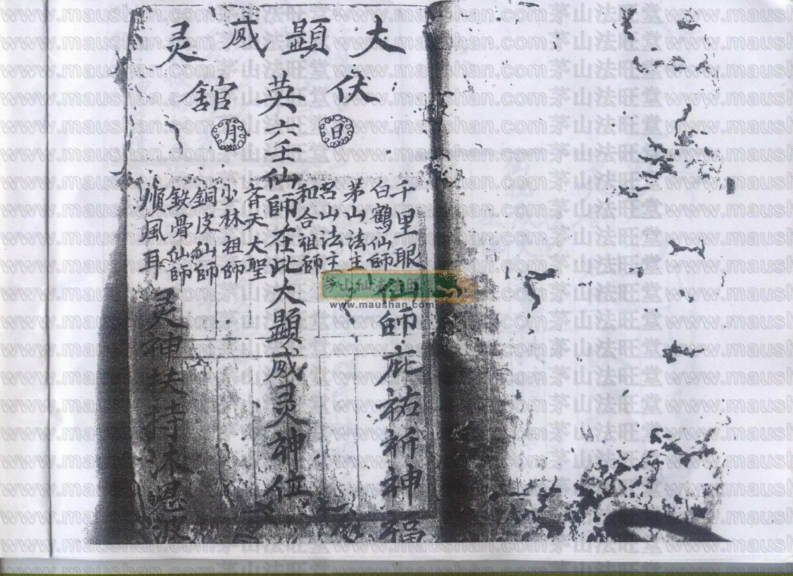 大顯威灵
伏英舘
日
月
千里眼仙師庇祐祈神福
白鶴仙師
茅山法主
呂山法主
和合祖師
六壬仙師在此大顯威灵神位
齊天大聖
少林祖師
銅皮仙師
鉄骨仙師
順風耳灵神扶持沐恩波
www.maushan.com
茅山法旺堂www.maushan.com